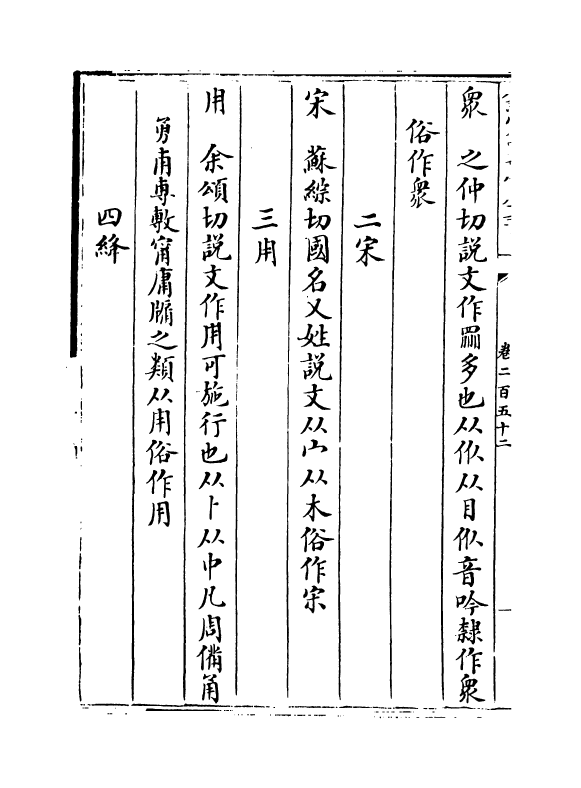 卷二百五十二
衆　之仲切說文作眾多也从㐺从目㐺音吟隸作衆
俗作衆
二宋
宋　蘇綜切國名又姓說文从宀从木俗作宋
三用
用　余頌切說文作用可施行也从卜从中凡周備甬
勇甫專敷甯庸牖之類从用俗作用
四絳